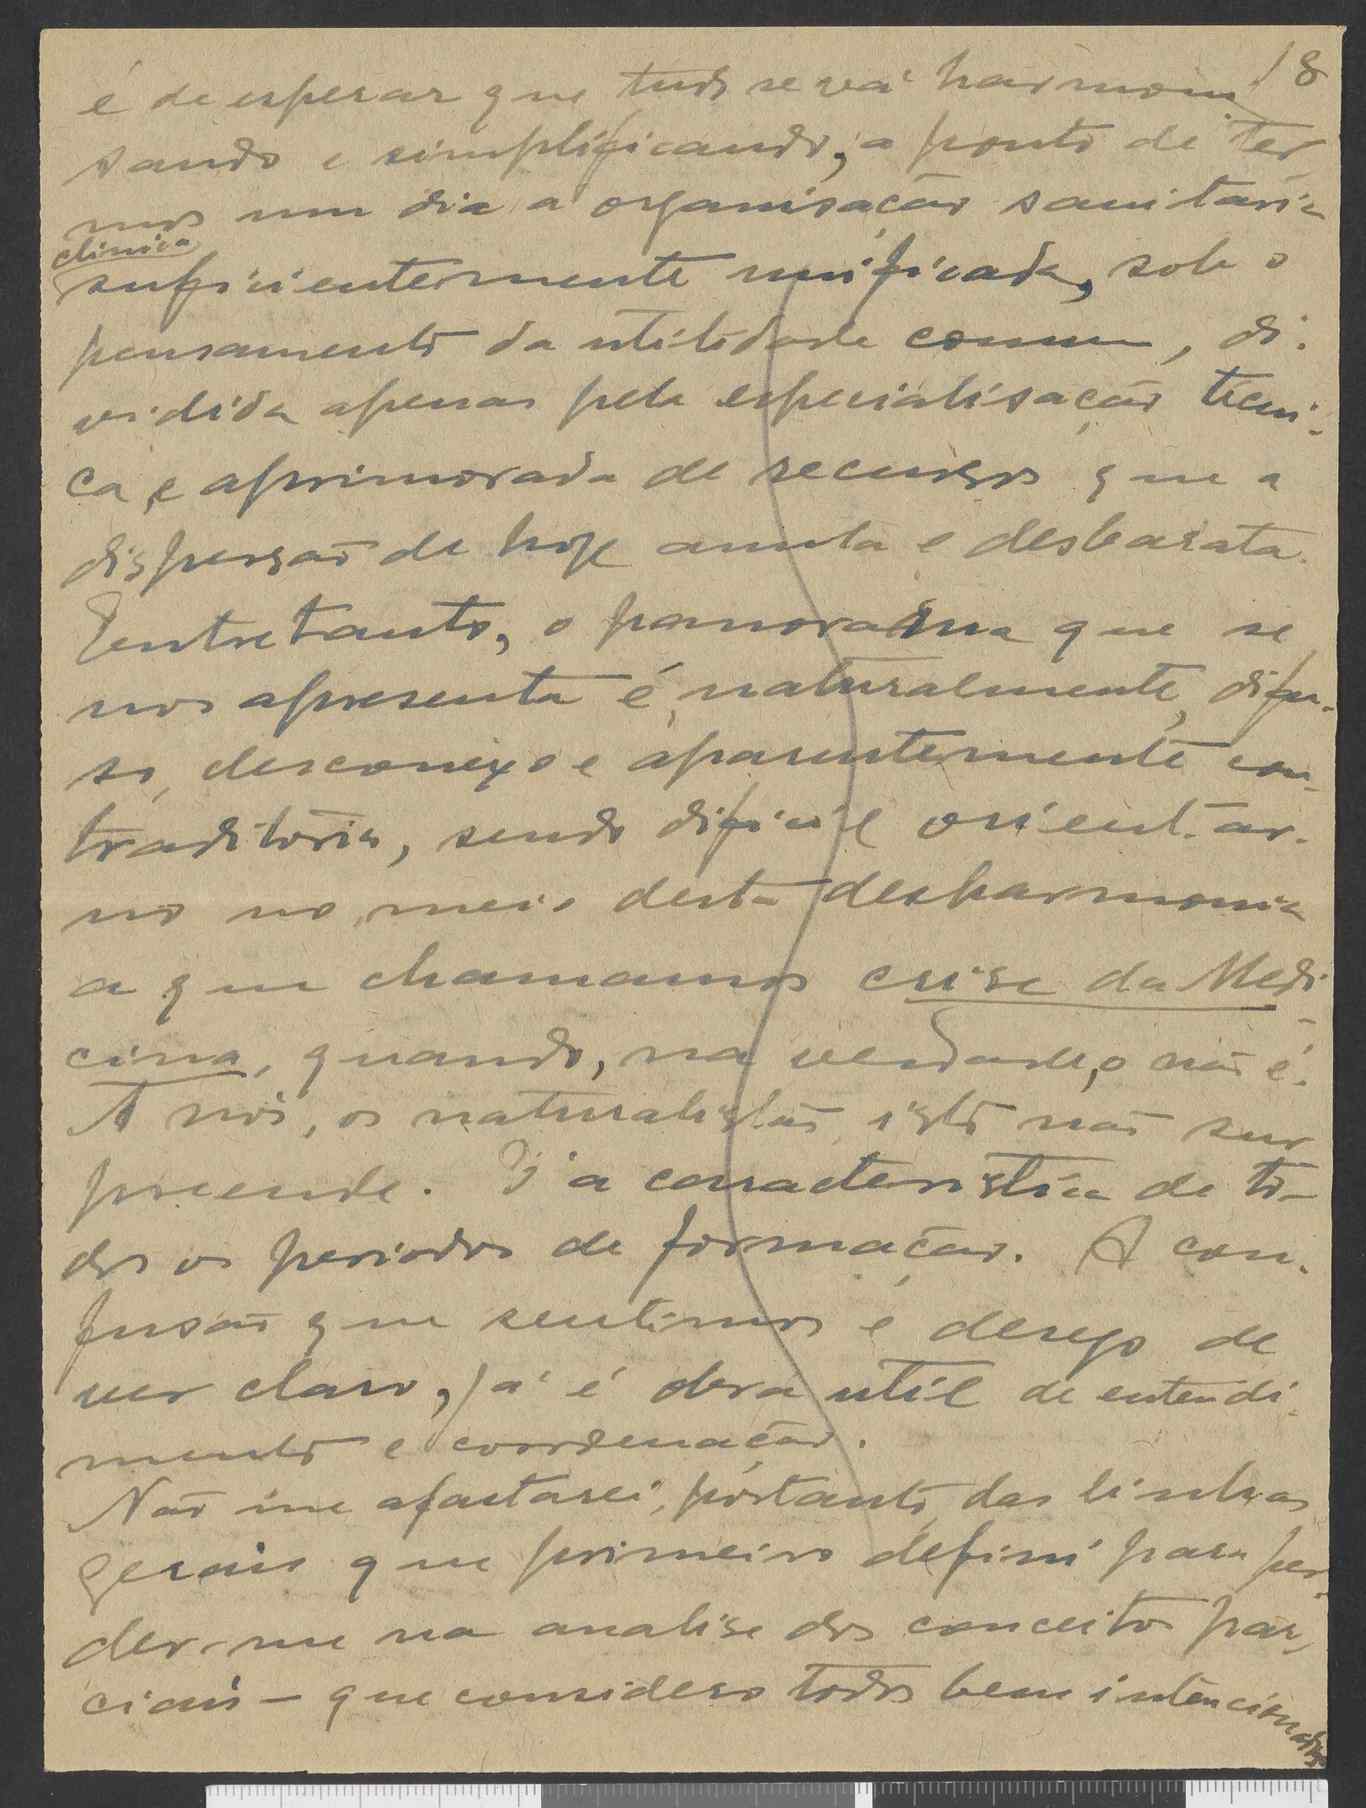 18
é de esperar que tudo se vá harmoni
sando e simplificando, a ponto de ter
mos um dia a organisação sanitaria
clinica
suficientemente unificada, sob o
pensamento da utilidade comum, di-
vidida apenas pela especialisação tecni-
ca e aprimorada de recursos que a
dispersão de hoje anula e desbarata.
Entretanto, o panorama que se
nos apresenta é, naturalmente, difu-
so, desconexo e aparentemente con-
traditorio, sendo dificil orientar-
no no meio desta desharmonia
a que chamamos crise da Medi-
cina, quando, na verdade, o não é.
A nós, os naturalistas, isto não sur
preende. É a caracteristica de to-
dos os periodos de formação. A con-
fusão que sentimos é desejo de
ver claro, já é obra util de entendi-
mento e coordenação.
Não me afastarei, portanto, das linhas
gerais que primeiro defini para per-
der-me na analise dos conceitos par-
ciais – que considero todos bem intencionados